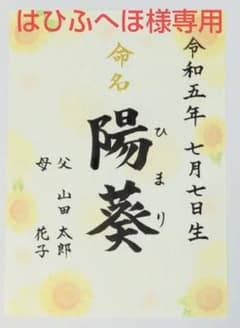 はひふへほ様専用
令和五年 七月七日生
命名
陽葵
ひまり
父 山田 太郎
母 花子